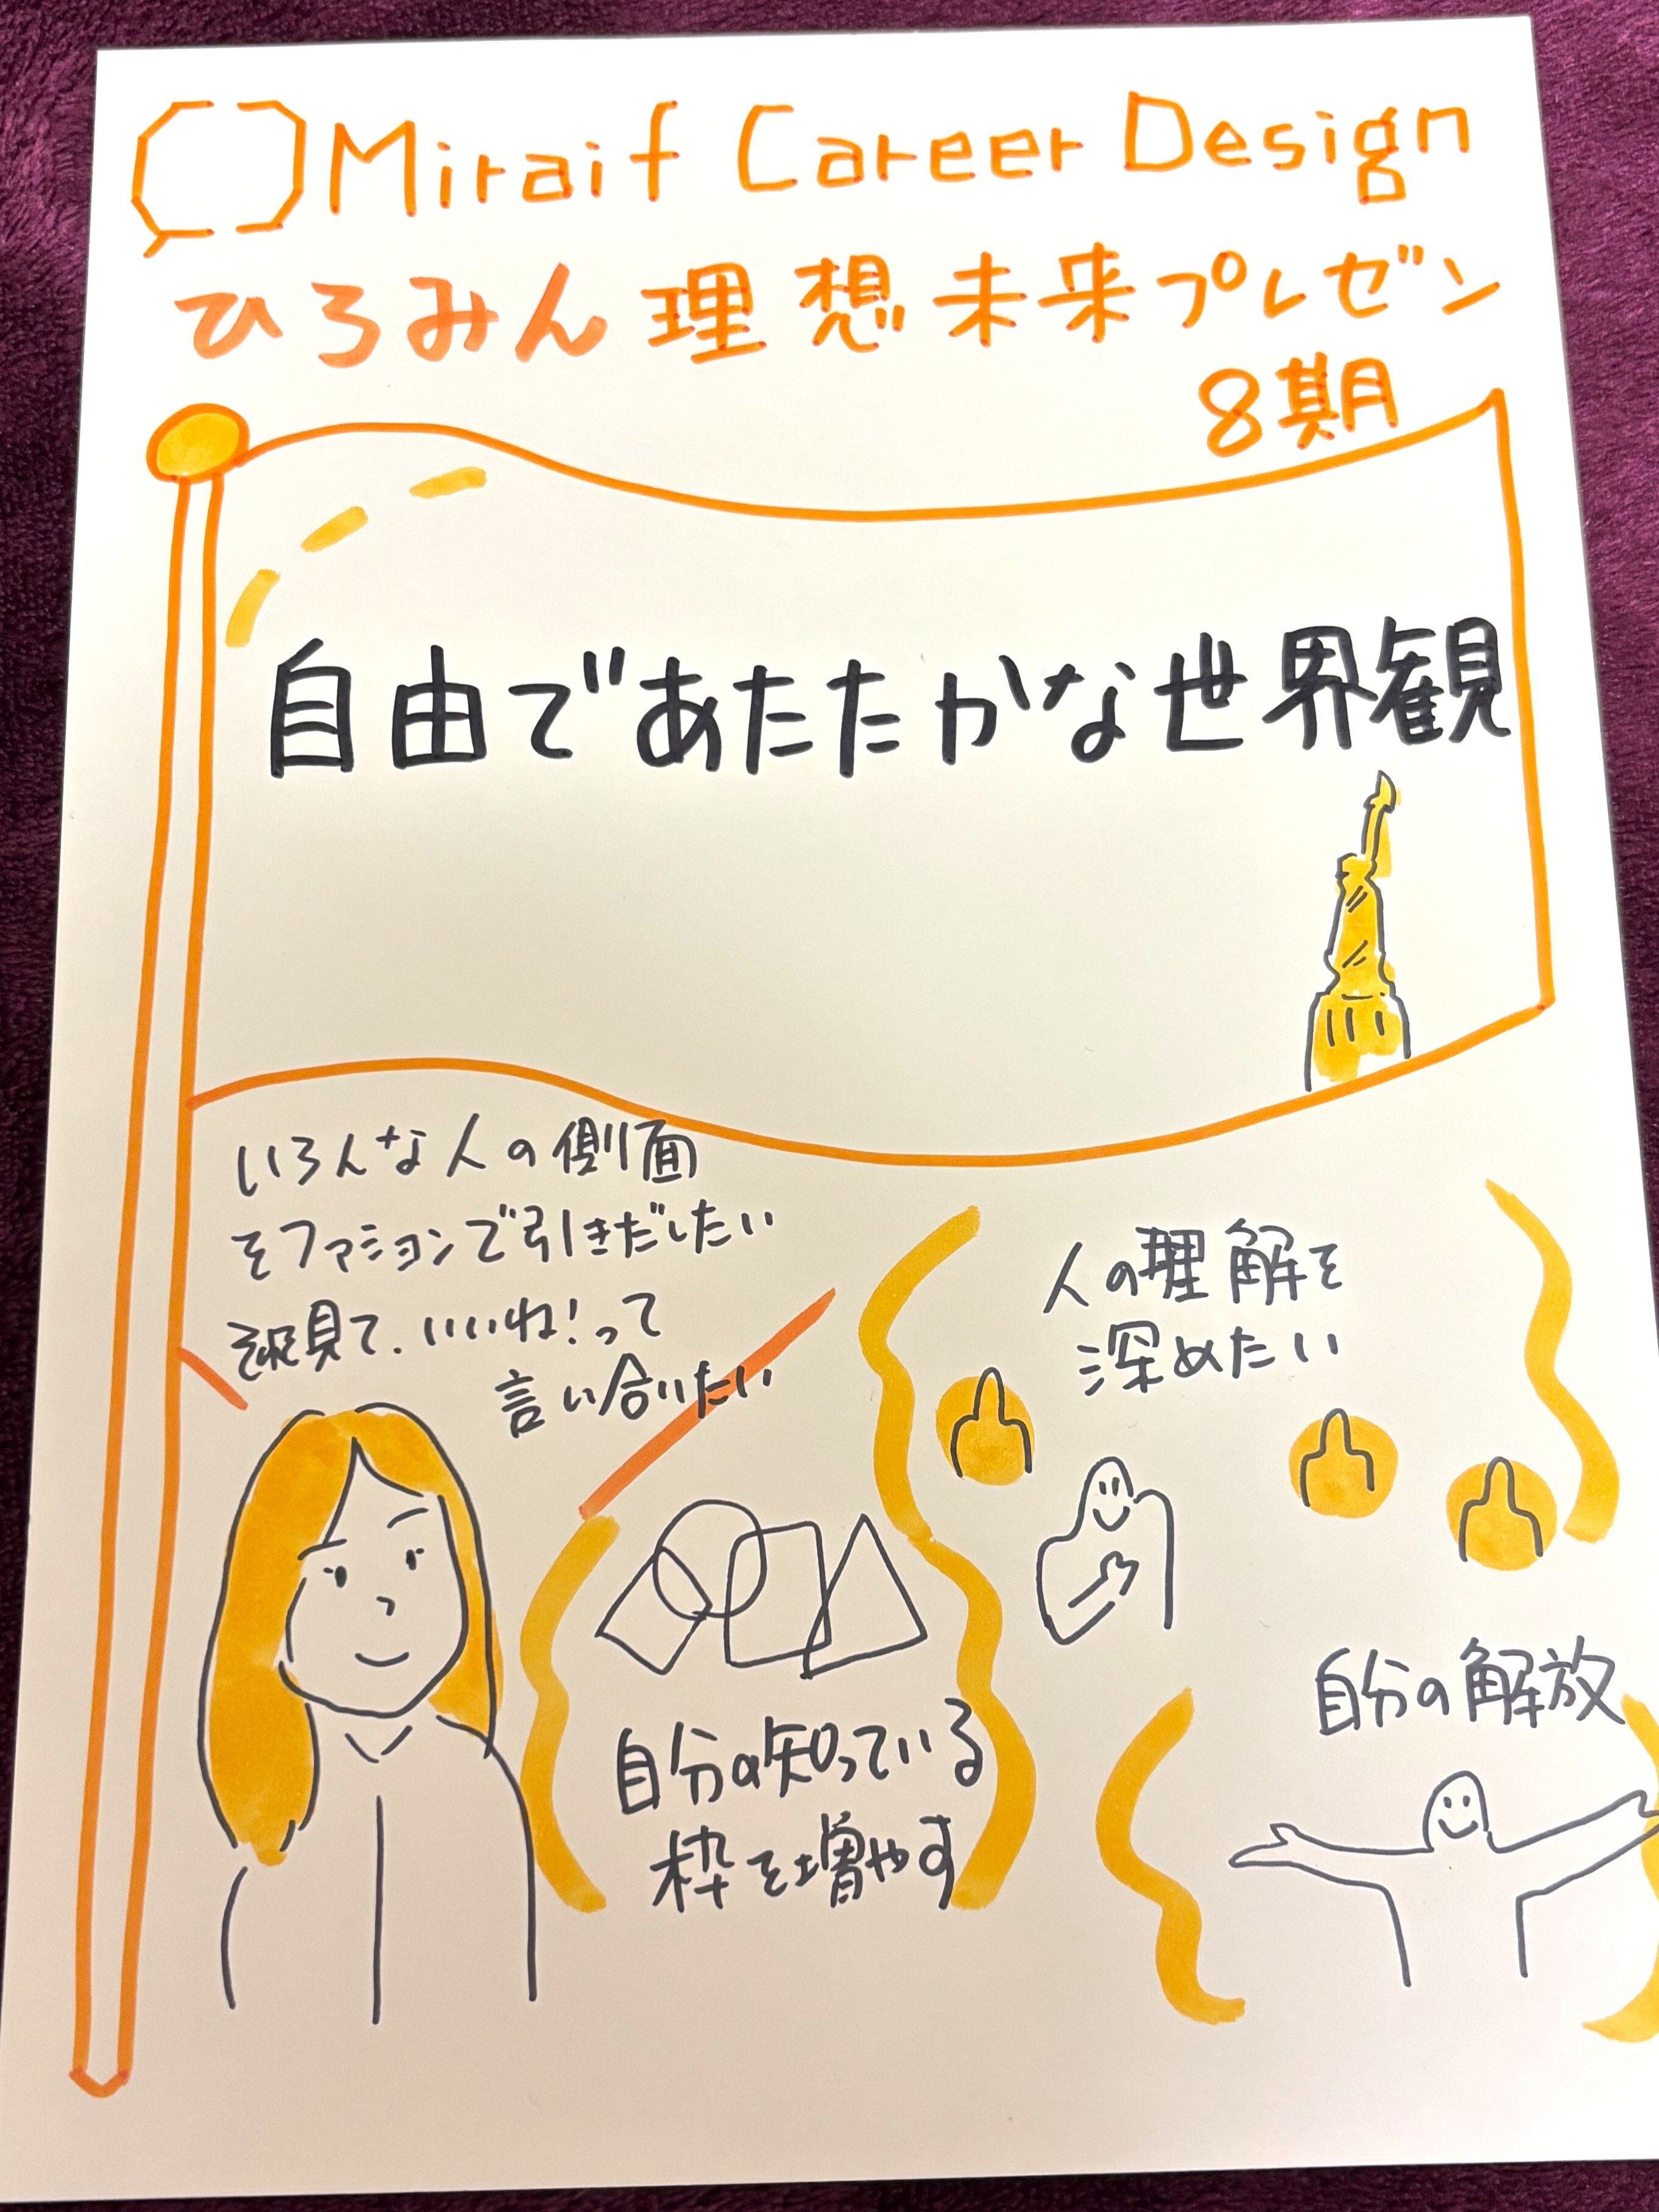 Miraif Career Design
ひろみん理想未来プレゼン
8期
自由であたたかな世界観
いろんな人の側面
をファションで引きだしたい
見て、いいね!って
言い合いたい
人の理解を
深めたい
自分の知っている
枠を増やす
自分の解放